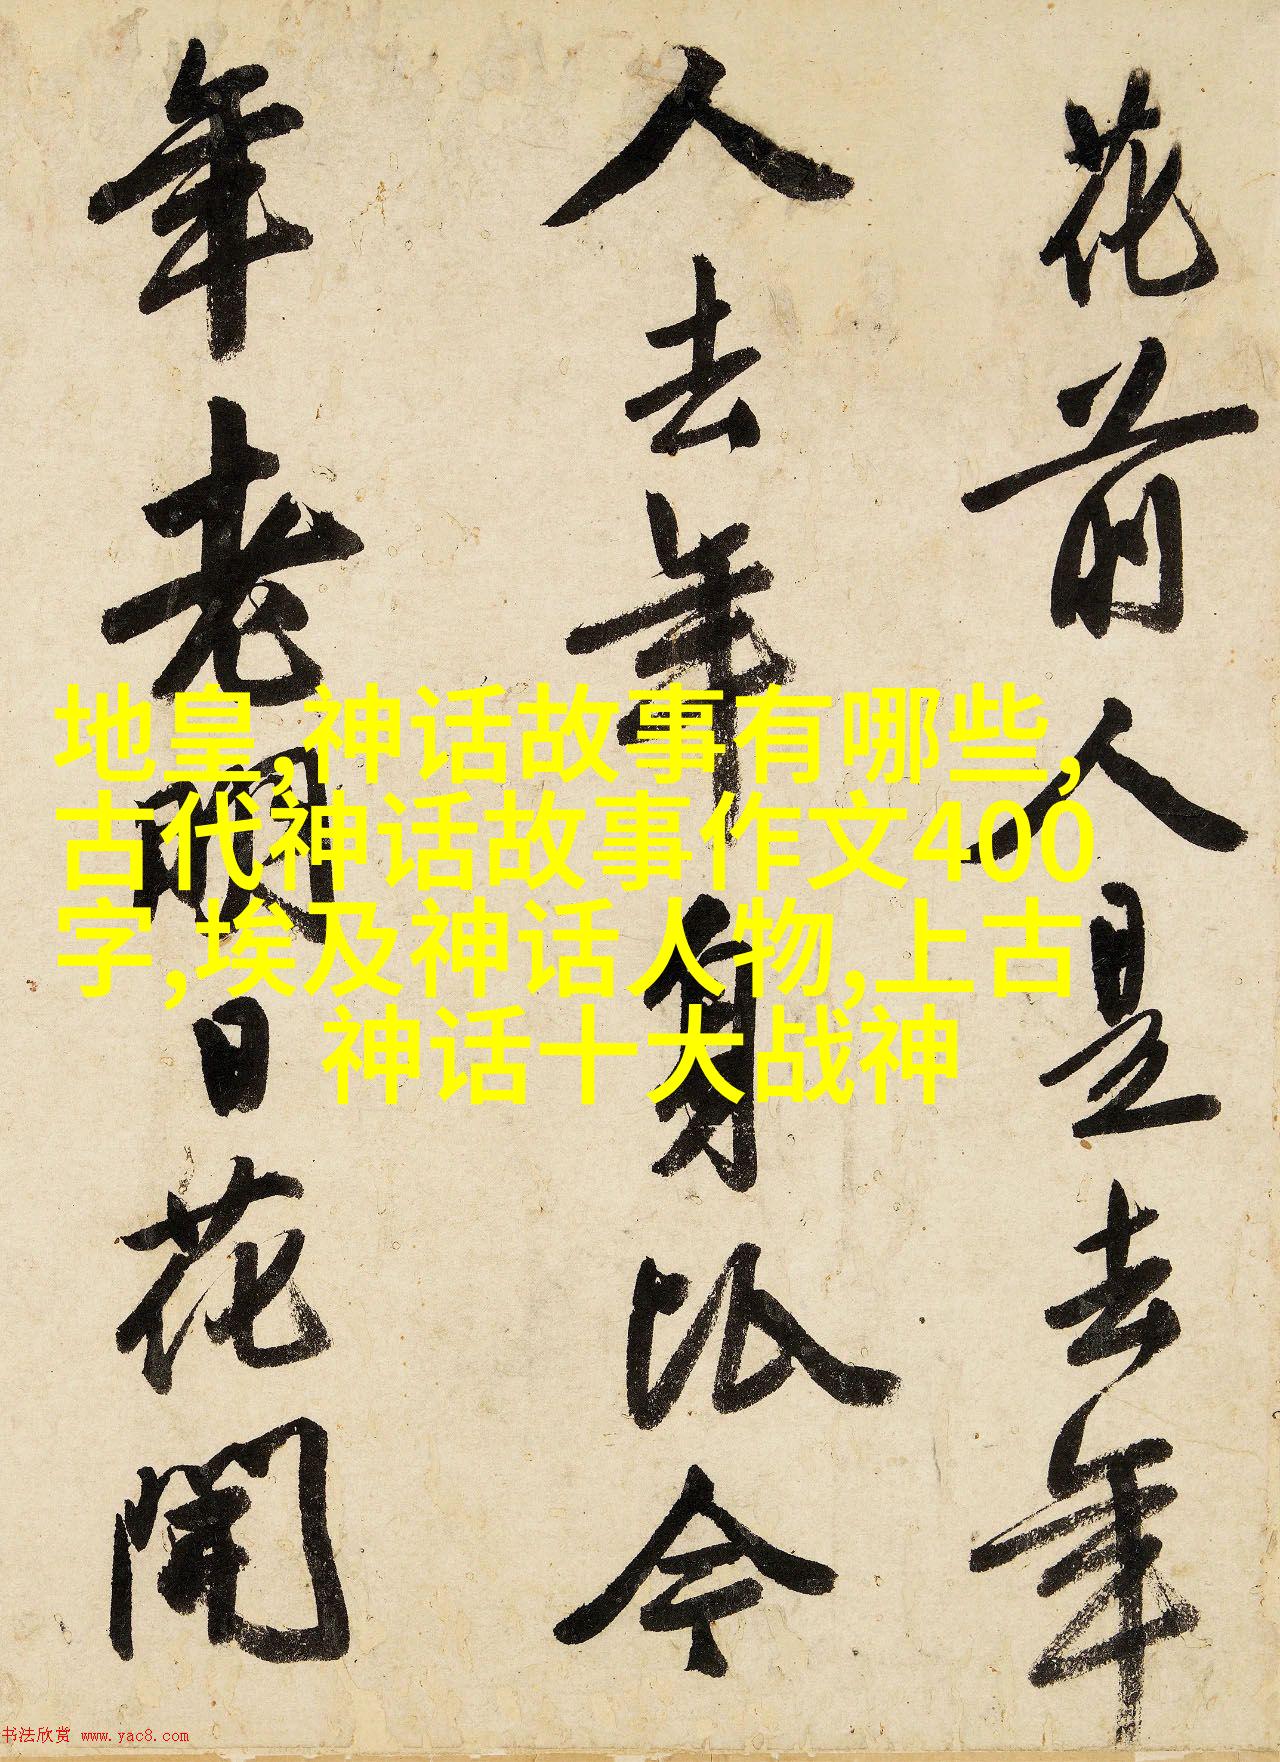 花前人是去年
人去年身比今
年老明日花開
地皇,神话故事有哪些,
古代神话故事作文400
字,埃及神话人物,上古
神话十大战神
书法欣赏 www.yac8.com